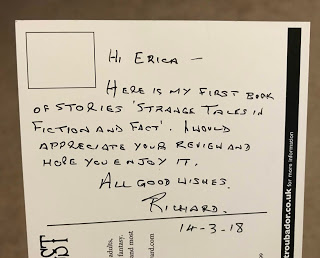 Hi Erica —
Here is my first book
of stories 'Strange Tales in
Fiction and Fact'. I would
appreciate your review and
hope you enjoy it.
All good wishes.
Richard.
14-3-18
troubador.co.uk for more information
adults,
fantasy,
and most
ard.com